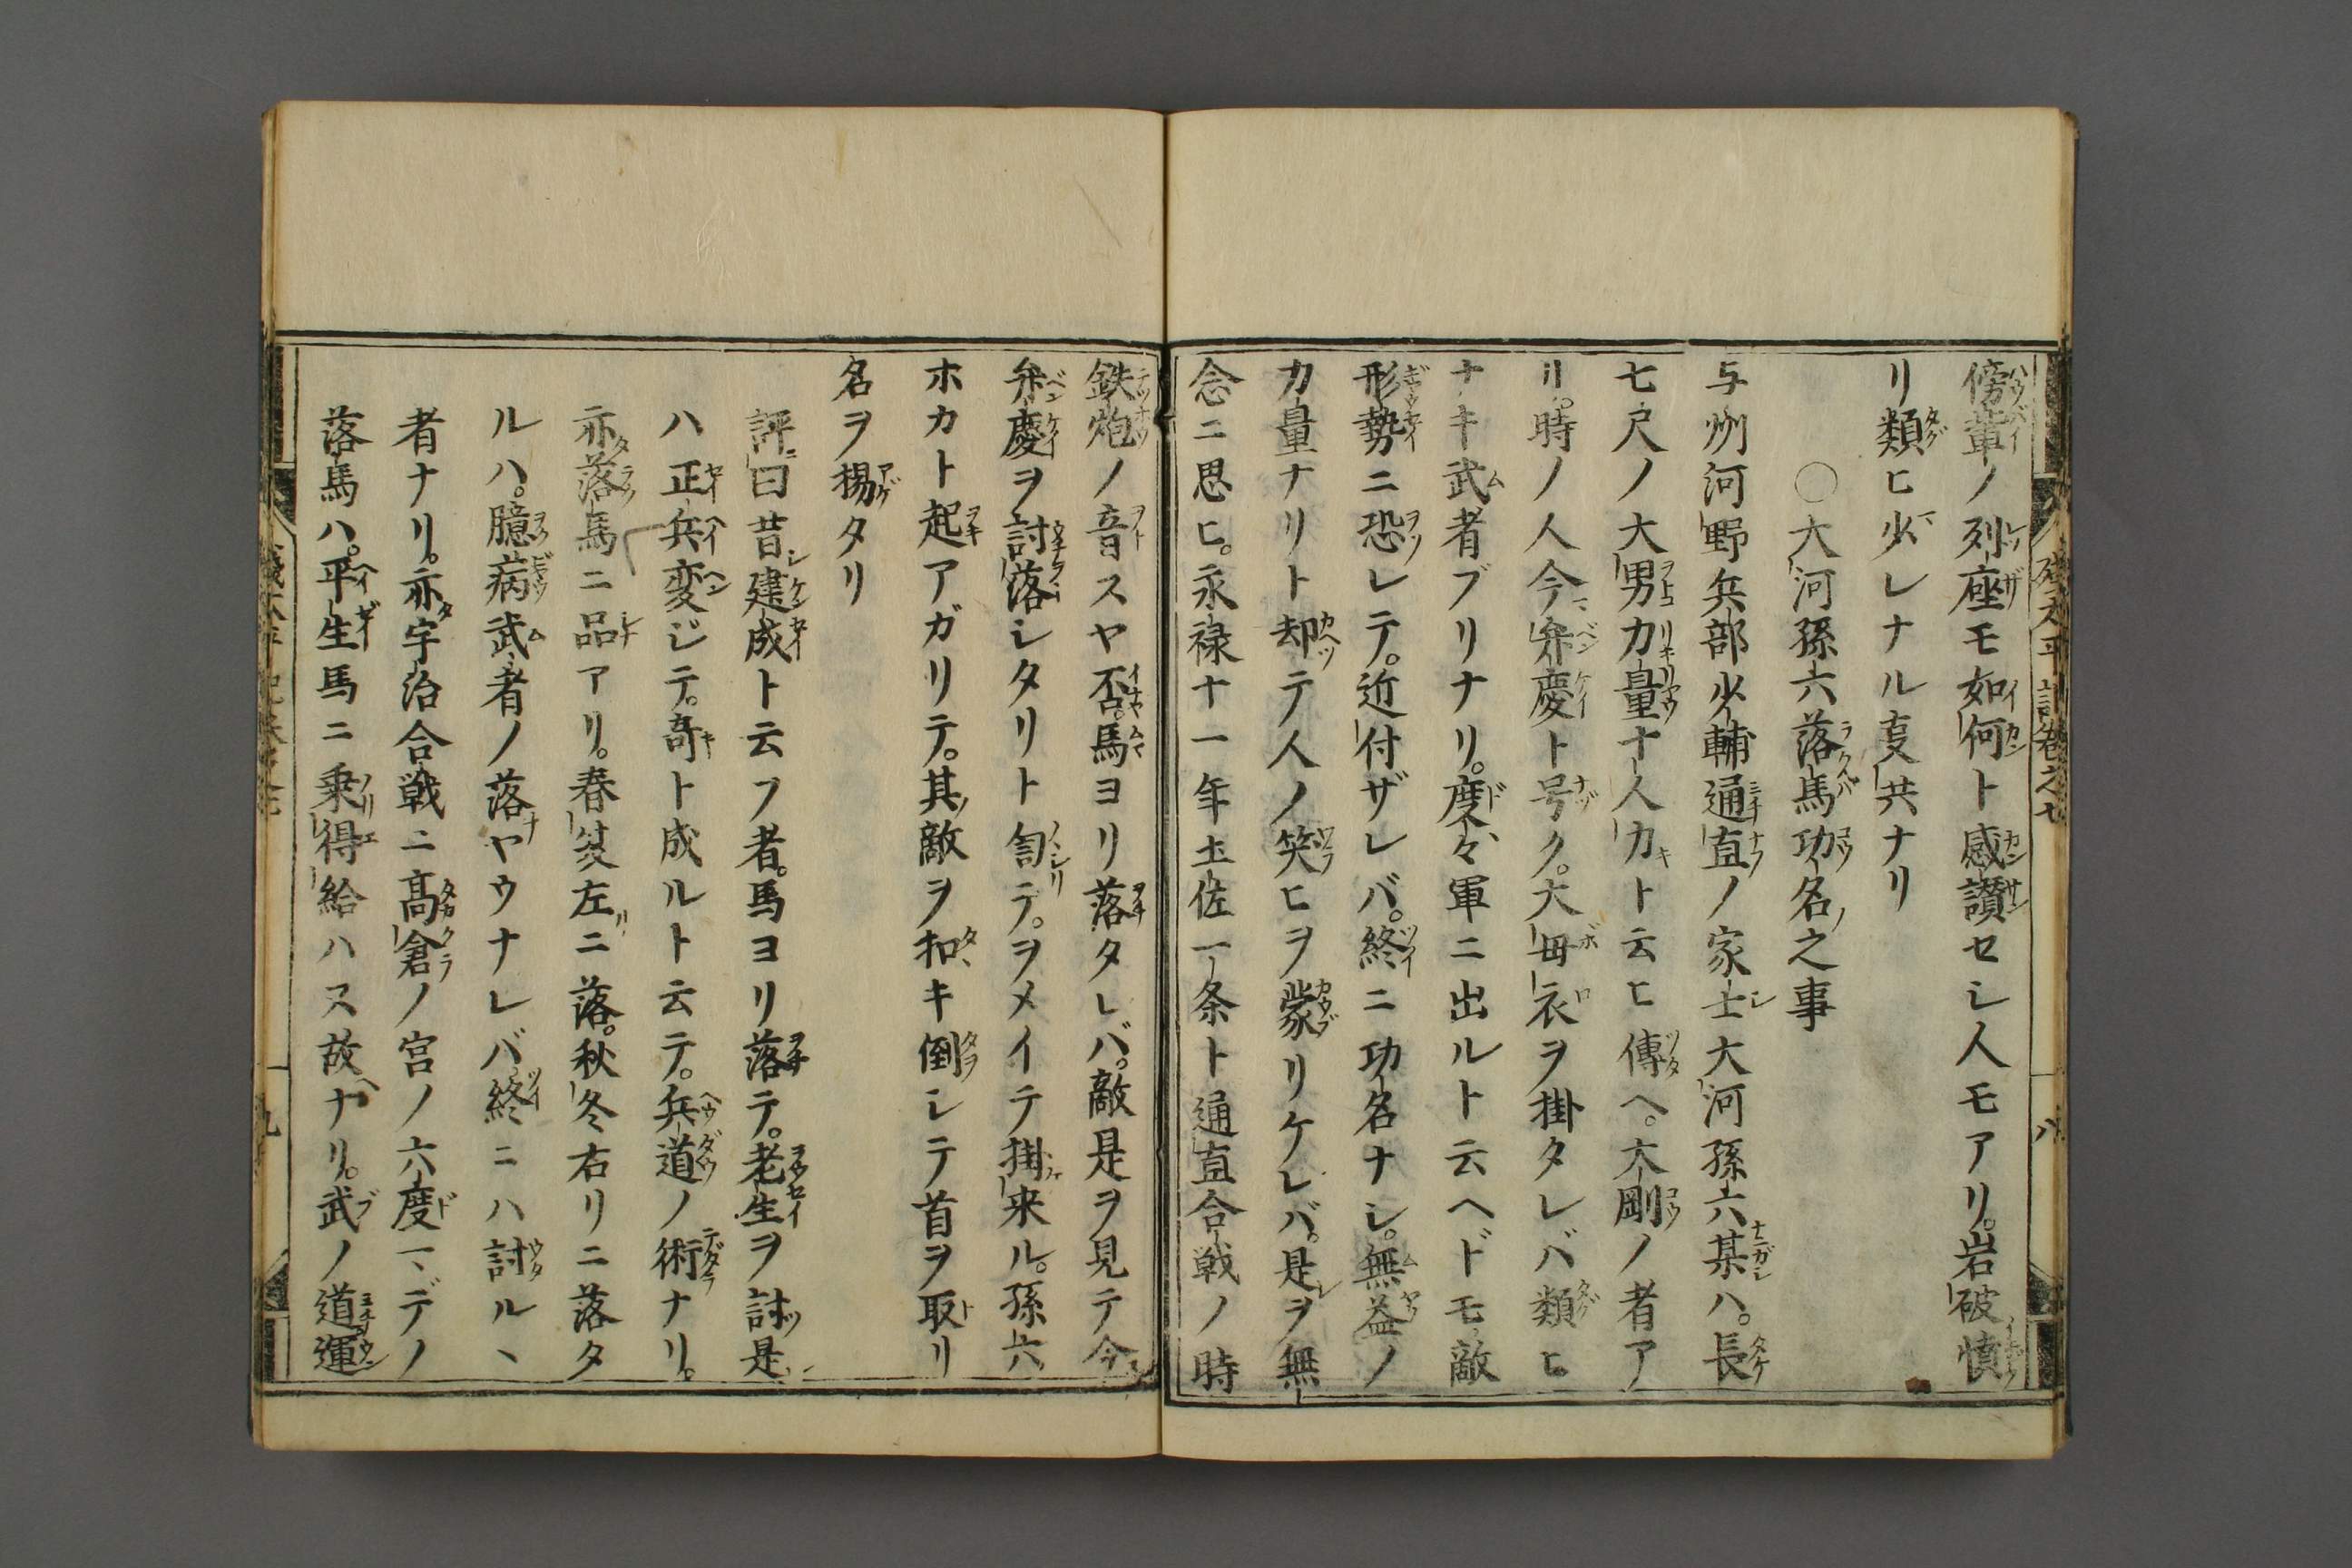 傍輩ノ列座モ如何ト感讃セシ人モアリ。岩破憤
リ類ヒ少レナル支共ナリ
○大河孫六落馬功名之事
与州河野兵部少輔通直ノ家士大河孫六某ハ。長
七尺ノ大男力量十人力ト云ヒ傳ヘ。大剛ノ者ア
リ。時ノ人今弁慶ト号ク。大母衣ヲ掛タレバ類ヒ
ナキ武者ブリナリ。度々軍ニ出ルト云ヘドモ敵
形勢ニ恐レテ。近付ザレバ。終ニ功名ナシ。無益ノ
力量ナリト却テ人ノ笑ヒヲ蒙リケレバ。是ヲ無
念ニ思ヒ。永禄十一年土佐一条ト通直合戦ノ時
鉄炮ノ音スヤ否。馬ヨリ落タレバ。敵是ヲ見テ今
弁慶ヲ討落シタリト訇テ。ヲメイテ掛来ル。孫六
ホカト起アガリテ。其敵ヲ扣キ倒シテ首ヲ取リ
名ヲ揚タリ
評曰昔建成ト云フ者。馬ヨリ落テ。老生ヲ討是
ハ正兵変ジテ。奇ト成ルト云テ。兵道ノ術ナリ。
亦落馬ニ品アリ。春夏左ニ落。秋冬右リニ落タ
ルハ。臆病武者ノ落ヤウナレバ終ニハ討ルヽ
者ナリ。亦宇治合戦ニ高倉ノ宮ノ六度マデノ
落馬ハ。平生馬ニ乗得給ハヌ故ナリ。武ノ道運
残太平記巻之七
八
九